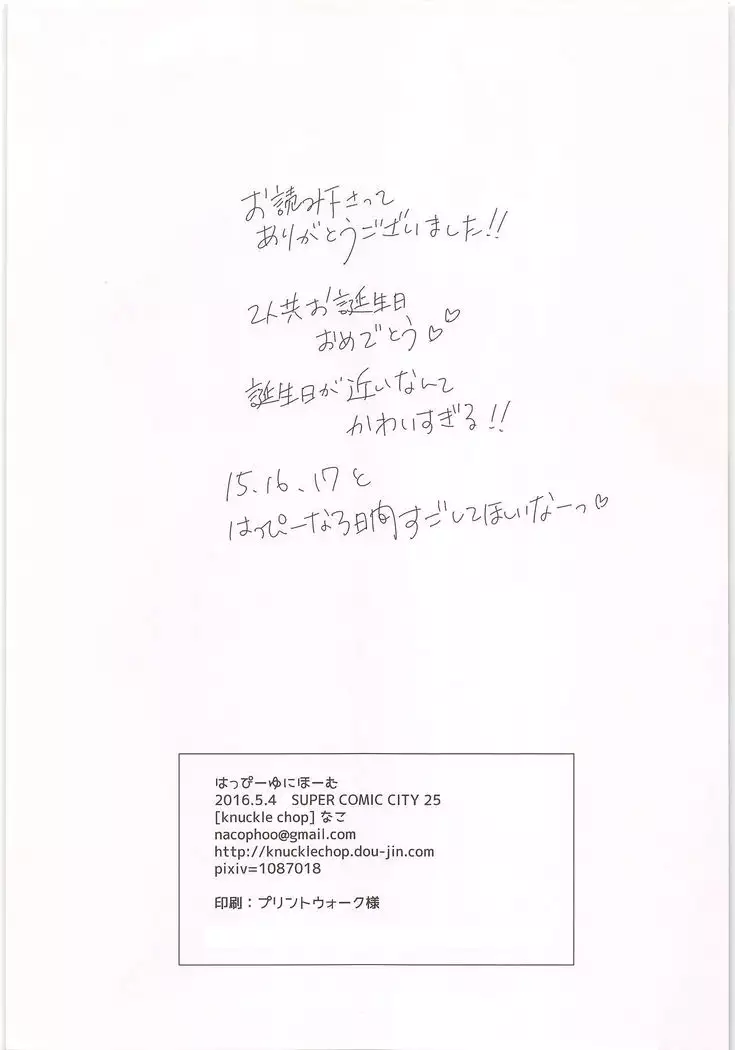 お読み下さって
ありがとうございました!!
2人共お誕生日
おめでとう♡♡
誕生日が近いなんて
かわいすぎる!!
15.16.17と
はっぴーな3日間すごしてほしいなーっ♡
はっぴーゆにほーむ
2016.5.4 SUPER COMIC CITY 25
[knuckle chop] なこ
nacophoo@gmail.com
http://knucklechop.dou-jin.com
pixiv=1087018
印刷：プリントウォーク様